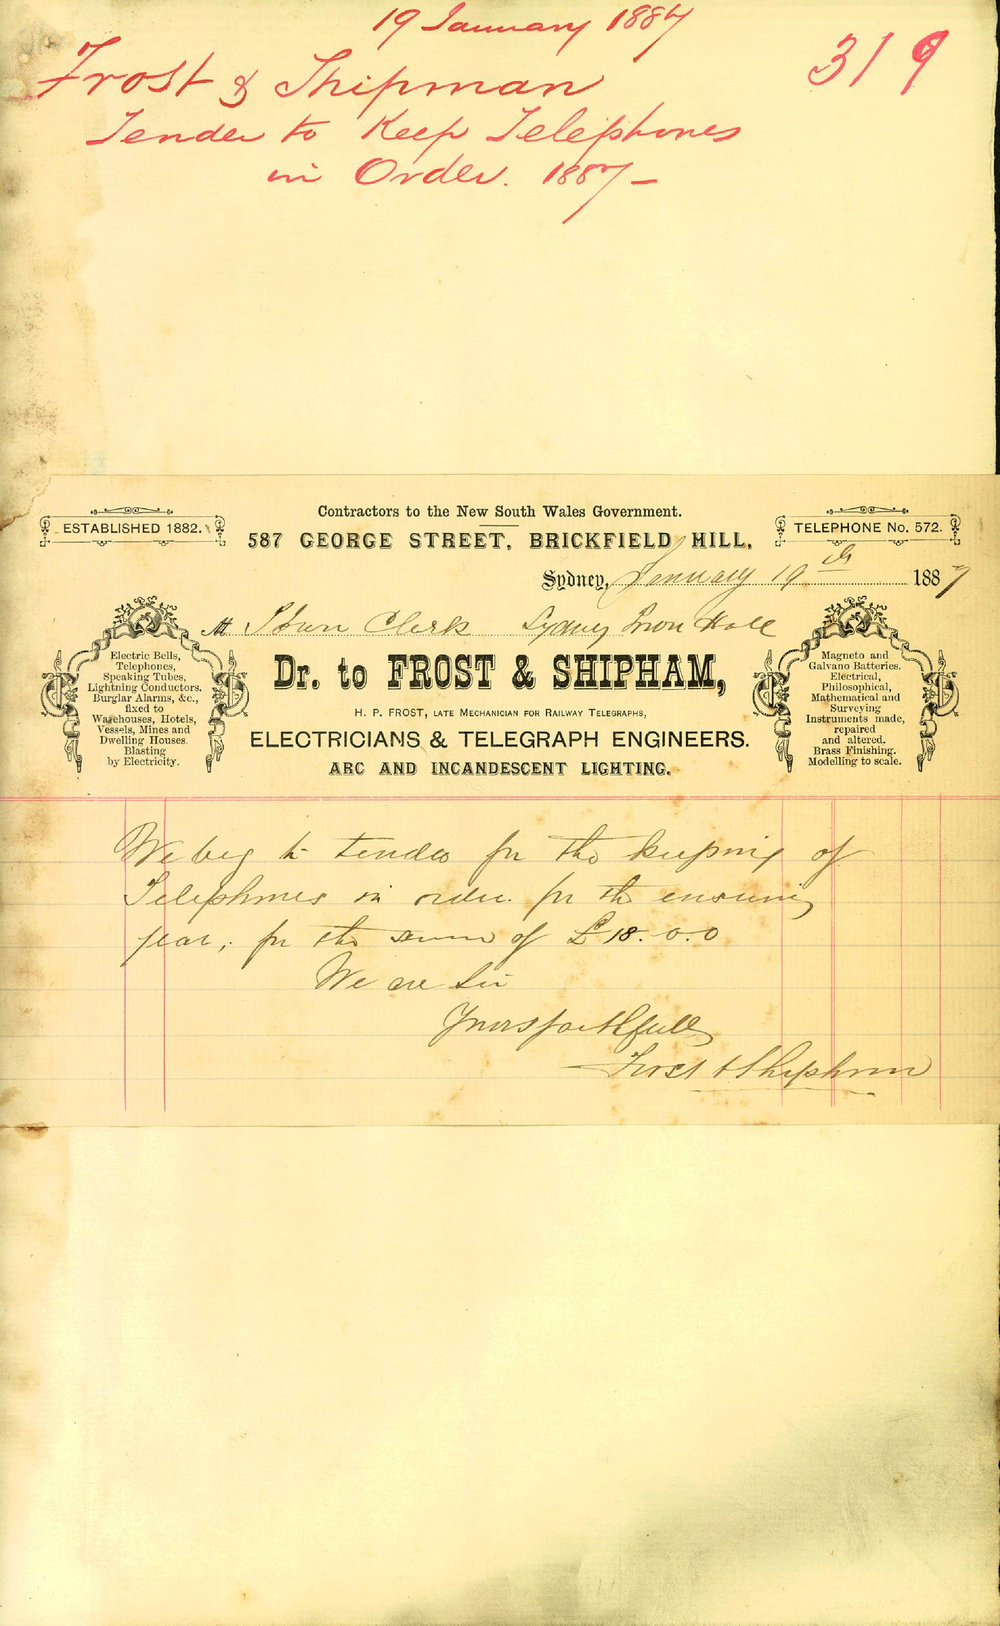 19 January 1887
319
Frost & Shipman
Tender to Keep Telephones
in Order. 1887 —
Contractors to the New South Wales Government.
ESTABLISHED 1882.
587 GEORGE STREET, BRICKFIELD HILL,
TELEPHONE No. 572.
Sydney, January 19th 1887
Town Clerk Sydney Town Hall
Dr. to FROST & SHIPHAM,
H. P. FROST, LATE MECHANICIAN FOR RAILWAY TELEGRAPHS,
ELECTRICIANS & TELEGRAPH ENGINEERS.
ARC AND INCANDESCENT LIGHTING.
Electric Bells,
Telephones,
Speaking Tubes,
Lightning Conductors.
Burglar Alarms, &c.,
fixed to
Warehouses, Hotels,
Vessels, Mines and
Dwelling Houses.
Blasting
by Electricity.
Magneto and
Galvano Batteries.
Electrical,
Philosophical,
Mathematical and
Surveying
Instruments made,
repaired
and altered.
Brass Finishing.
Modelling to scale.
We beg to tender for the keeping of
Telephones in order for the ensuing
year, for the sum of £18.0.0
We are Sir
Yours faithfully
Frost & Shipham